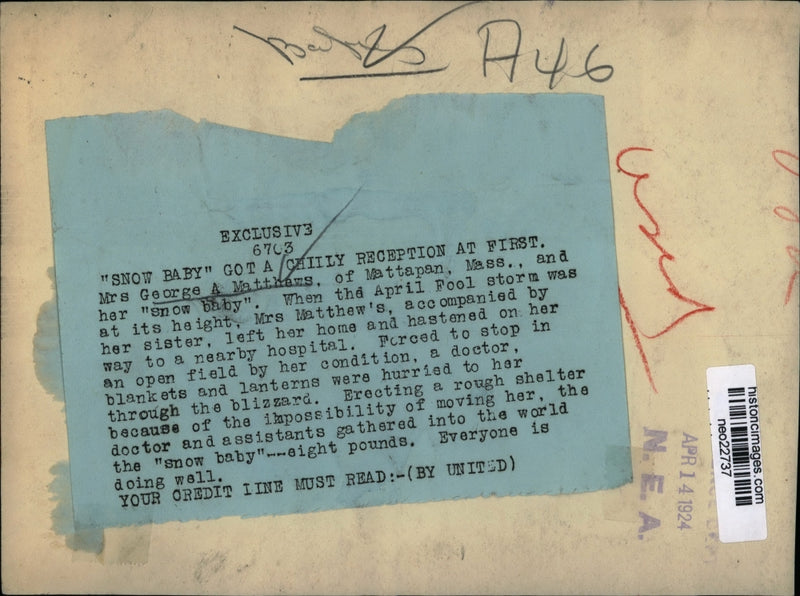 Babies
A46
EXCLUSIVE
6703
"SNOW BABY" GOT A CHIILY RECEPTION AT FIRST.
Mrs George A Matthews, of Mattapan, Mass., and
her "snow baby". When the April Fool storm was
at its height, Mrs Matthew's, accompanied by
her sister, left her home and hastened on her
way to a nearby hospital. Forced to stop in
an open field by her condition, a doctor,
blankets and lanterns were hurried to her
through the blizzard. Erecting a rough shelter
because of the impossibility of moving her, the
doctor and assistants gathered into the world
the "snow baby"--eight pounds. Everyone is
doing well.
YOUR CREDIT LINE MUST READ:-(BY UNITED)
used
APR 14 1924
N.E.A.
historicimages.com
neo22737